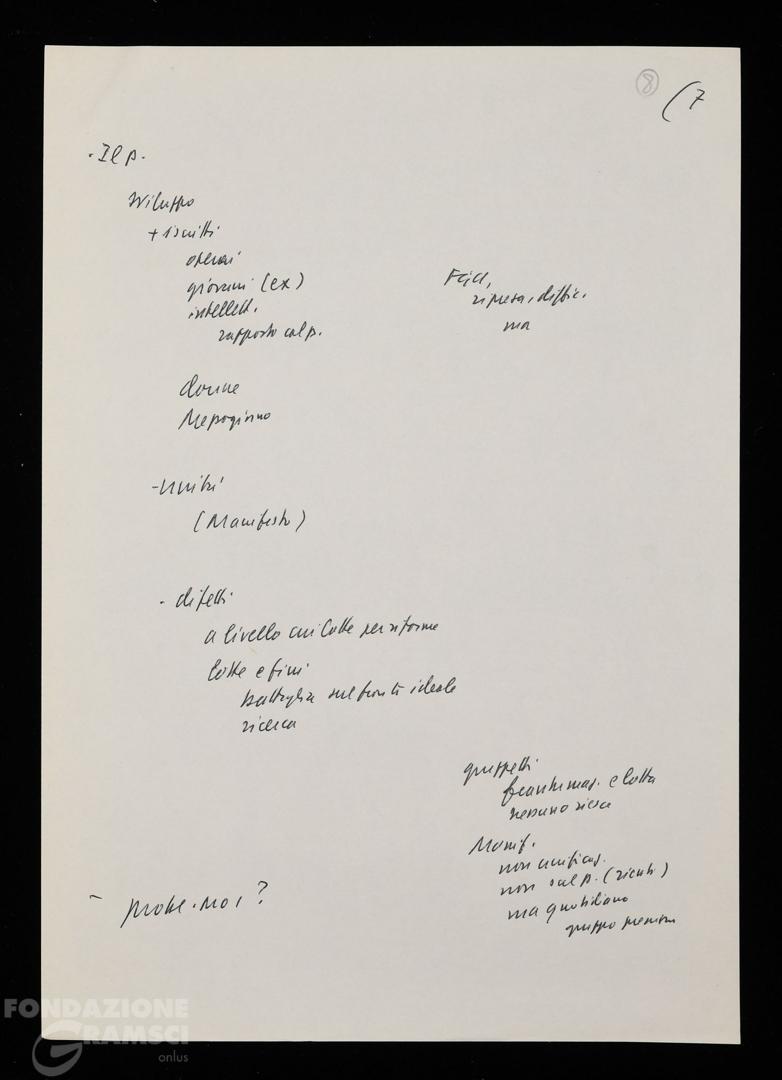 8
(7
- Il p.
sviluppo
+ iscritti
operai
giovani (ex)
intellett.
rapporto col p.
FGCI,
ripresa, diffic.
ma
donne
Mezzogiorno
- unità
(Manifesto)
- difetti
a livello lotte per riforme
lotte e fini
battaglia sul fronte ideale
ricerca
gruppetti
e lotta
nessuno
Manif.
non unificaz.
non sul p. (
ma quotidiano
gruppo
- ?
FONDAZIONE
GRAMSCI
onlus